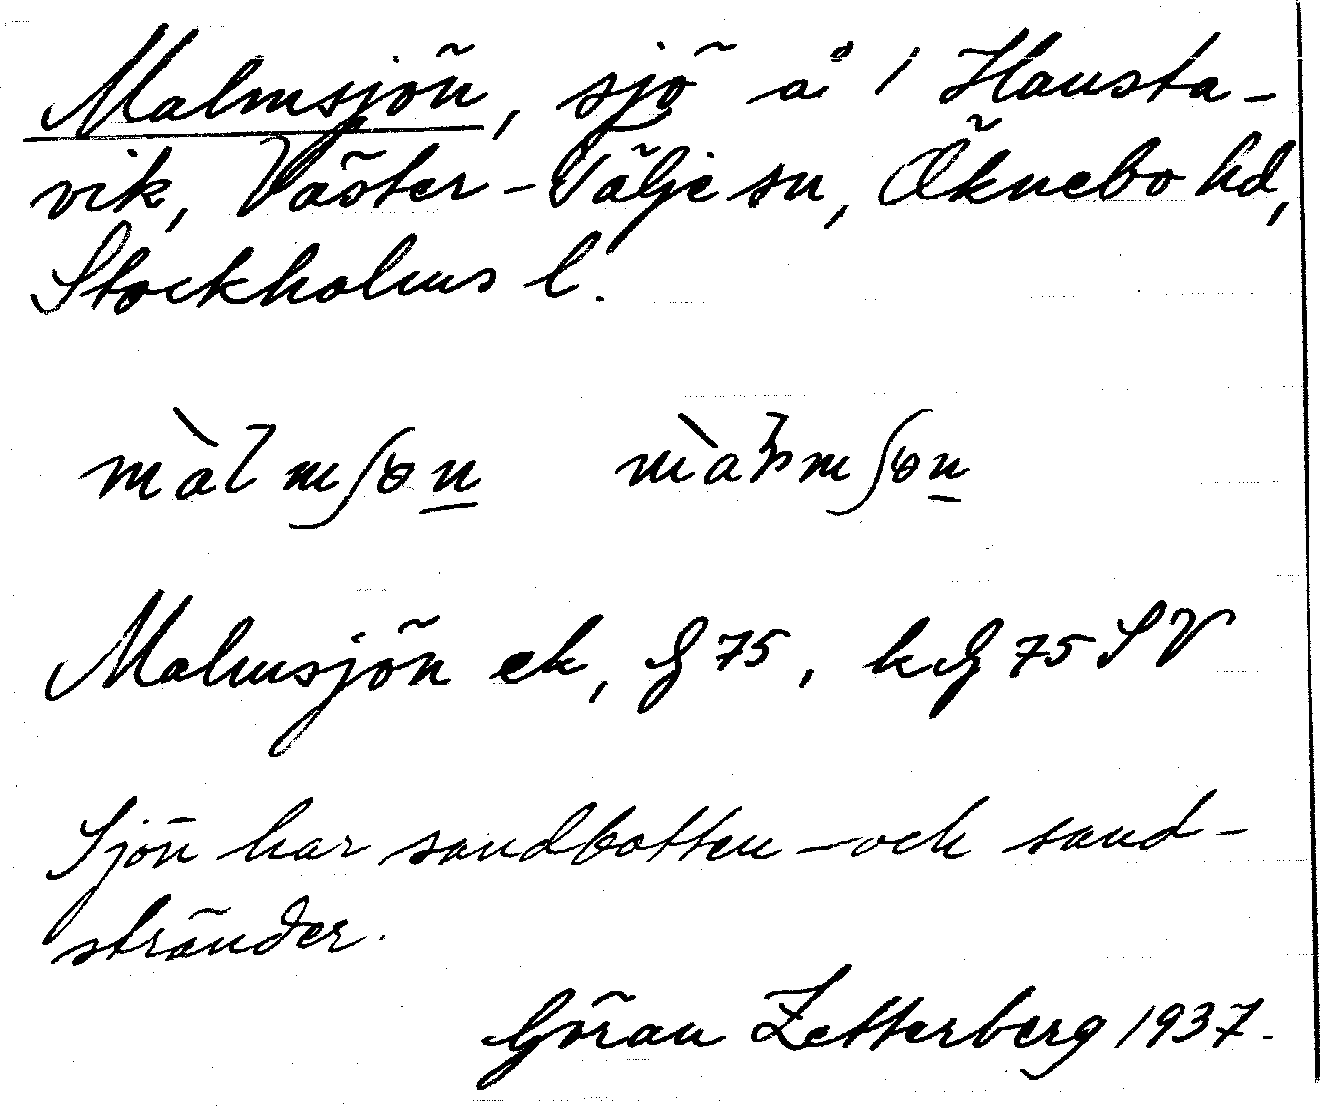 Malmsjön, sjö å 1 Hausta-
vik, Väster-Tälje sn, Öknebo hd,
Stockholms l.
màlmʃɵn màlmʃɵn
Malmsjön ek, G 75, kG 75 SV
Sjön har sandbotten och sand-
stränder.
Göran Zetterberg 1937.